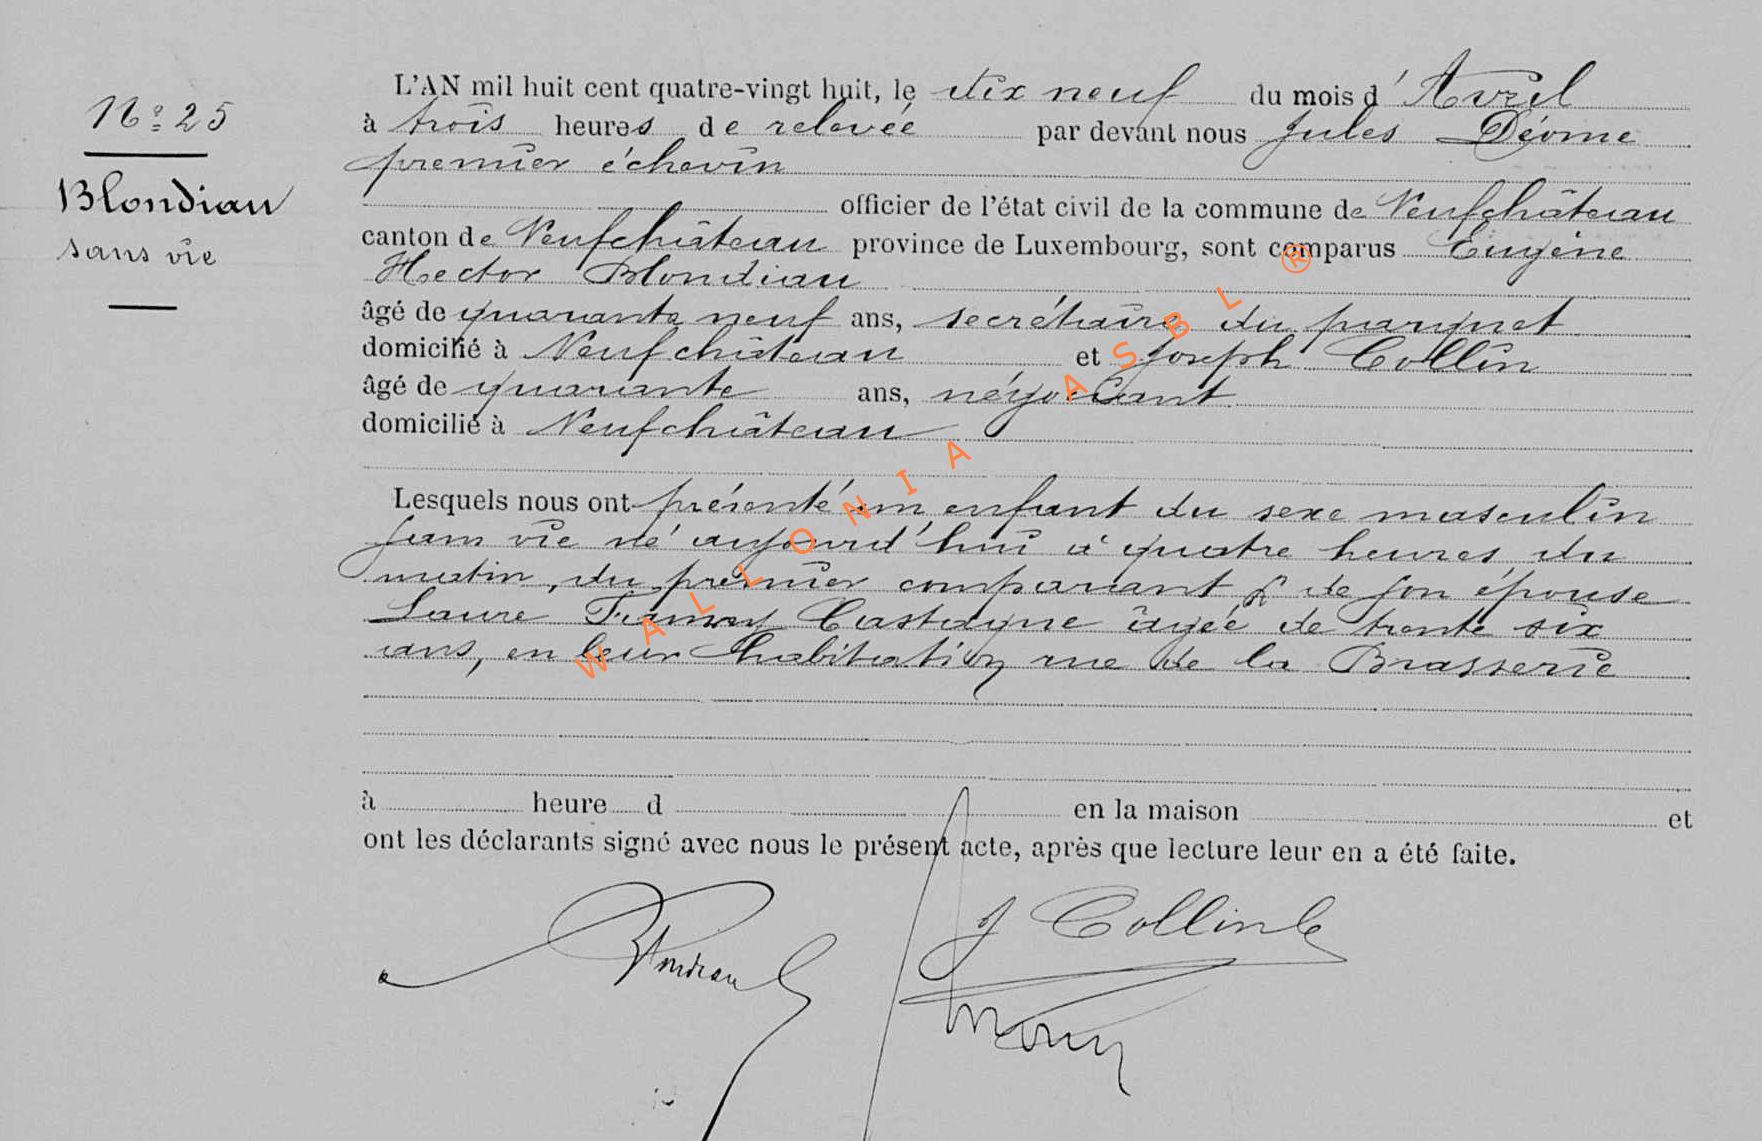 N° 25
Blondiau
sans vie
L'AN mil huit cent quatre-vingt huit, le dix neuf du mois d'Avril
à trois heures de relevée par devant nous Jules
premier échevin
officier de l'état civil de la commune de Neufchâteau
canton de Neufchâteau province de Luxembourg, sont comparus Eugène
Hector Blondiau
âgé de quarante neuf ans, secrétaire du parquet
domicilié à Neufchâteau et Joseph Collin
âgé de quarante ans, négociant
domicilié à Neufchâteau
Lesquels nous ont présenté un enfant du sexe masculin
sans vie né aujourd'hui à quatre heures du
matin, du premier comparant & de son épouse
Laure Fanny Castaigne âgée de trente six
ans, en leur habitation rue de la Brasserie
à heure d en la maison et
ont les déclarants signé avec nous le présent acte, après que lecture leur en a été faite.
Blondiau
J Collin
WALLONIA ASBL ®